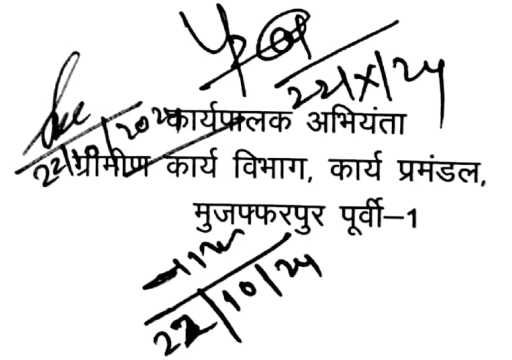 22/X/24
22/10/2024
कार्यपालक अभियंता
ग्रामीण कार्य विभाग, कार्य प्रमंडल,
मुजफ्फरपुर पूर्वी–1
22/10/24